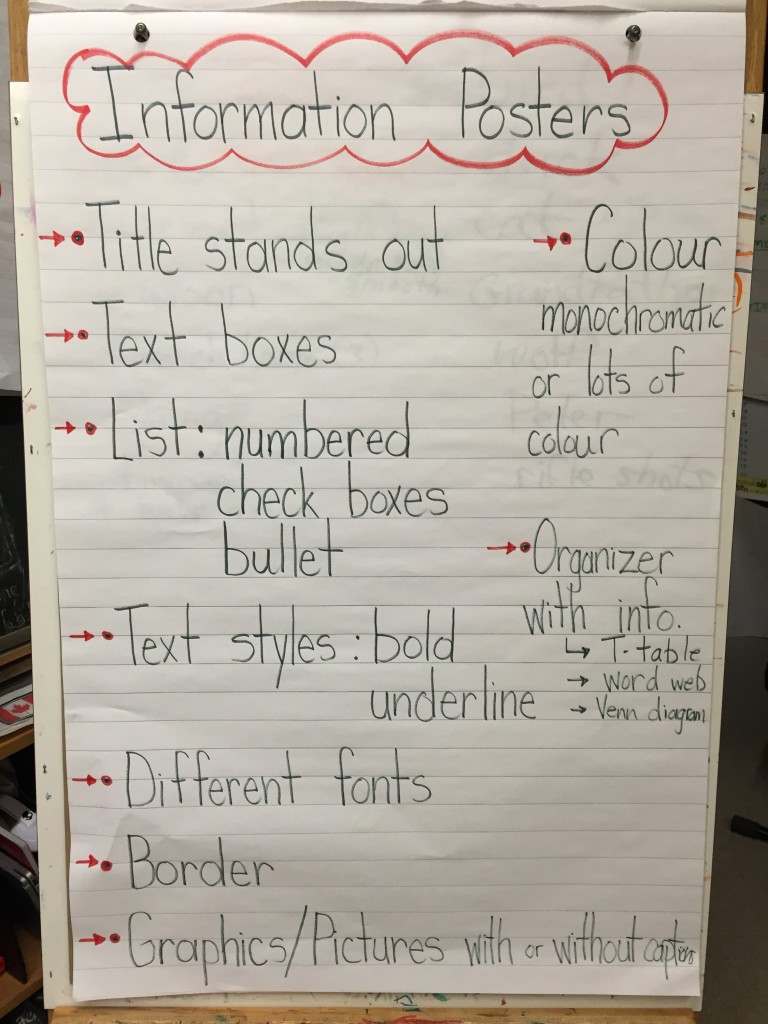 Information Posters
Title stands out
Text boxes
List: numbered
check boxes
bullet
Text styles: bold
underline
Different fonts
Border
Graphics/Pictures with or without captions
Colour
monochromatic
or lots of
colour
Organizer
with info.
↳ T-table
→ word web
→ Venn diagram